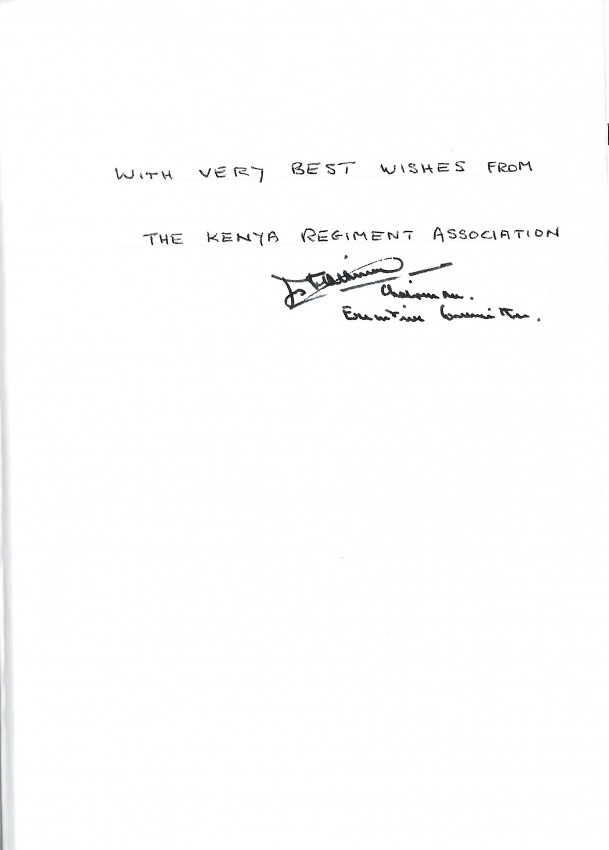 WITH VERY BEST WISHES FROM
THE KENYA REGIMENT ASSOCIATION
Chairman.
Executive Committee.